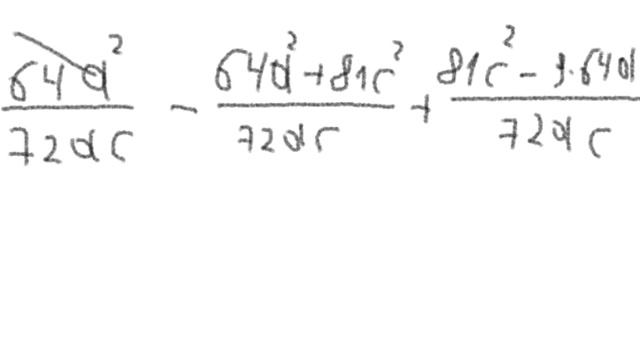 64d² / 72dc − 64d² + 81c² / 72dc + 81c² − 9·64d / 72dc